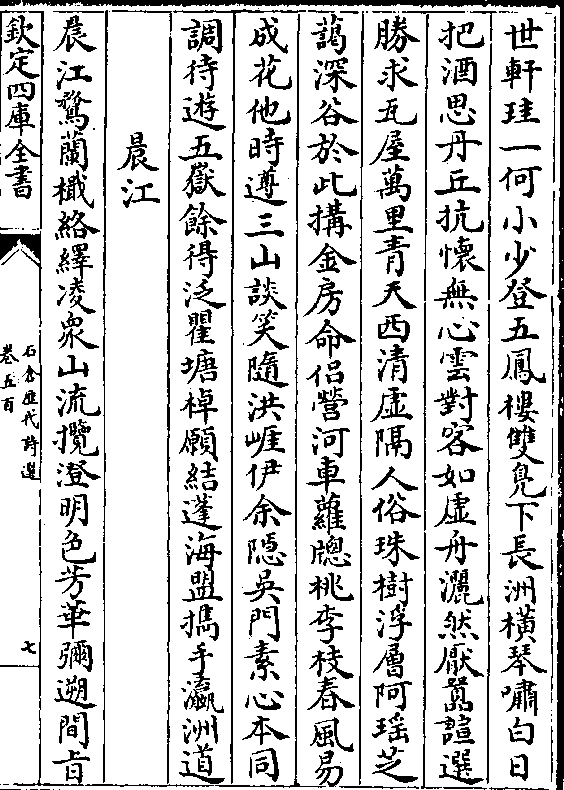 世軒珪一何小少登五鳳樓雙鳬下長洲橫琴嘯白日
把酒思丹丘抗懷無心雲對客如虛舟灑然厭囂諠選
勝求瓦屋萬里青天西清虛隔人俗珠樹浮層阿瑶芝
藹深谷於此搆金房命侣營河車蘿牕桃李枝春風易
成花他時遵三山談笑隨洪崕伊余隠吳門素心本同
調待遊五嶽餘得泛瞿塘棹願結蓬海盟擕手瀛洲道
晨江
晨江騖蘭檝絡繹凌衆山流攬澄明色芳華彌遡間㫖
欽定四庫全書
石倉歷代詩選
卷五百
七